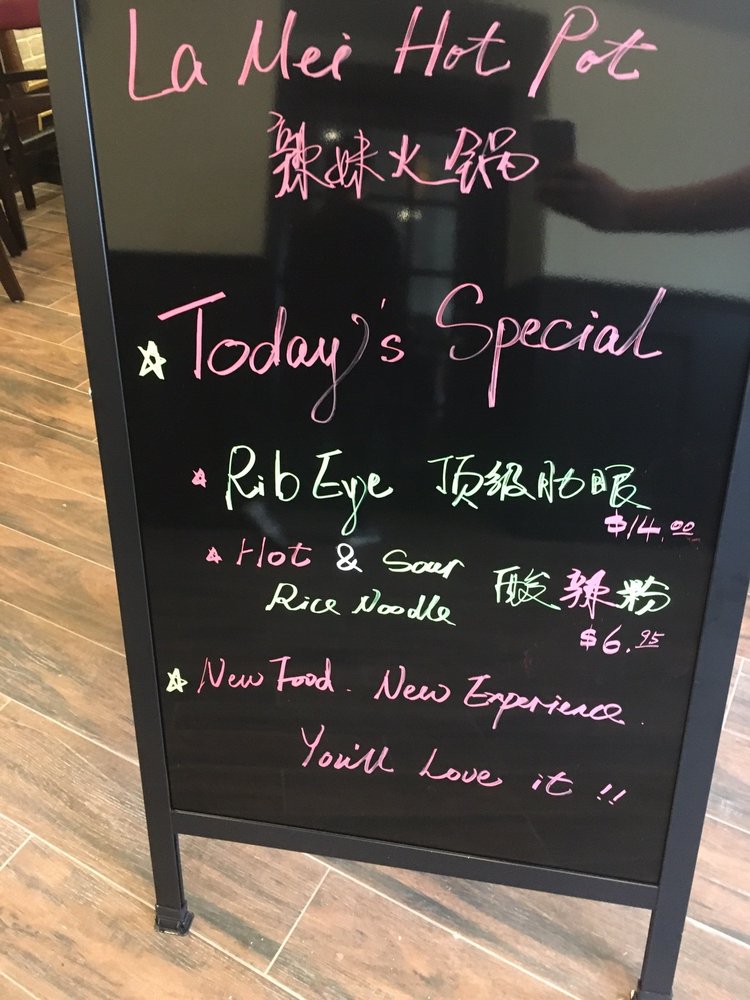 La Mei Hot Pot
辣妹火锅
Today's Special
Rib Eye 顶级肋眼
$14.00
Hot & Sour 酸辣粉
Rice Noodle
$6.95
New Food. New Experience.
You'll Love it !!